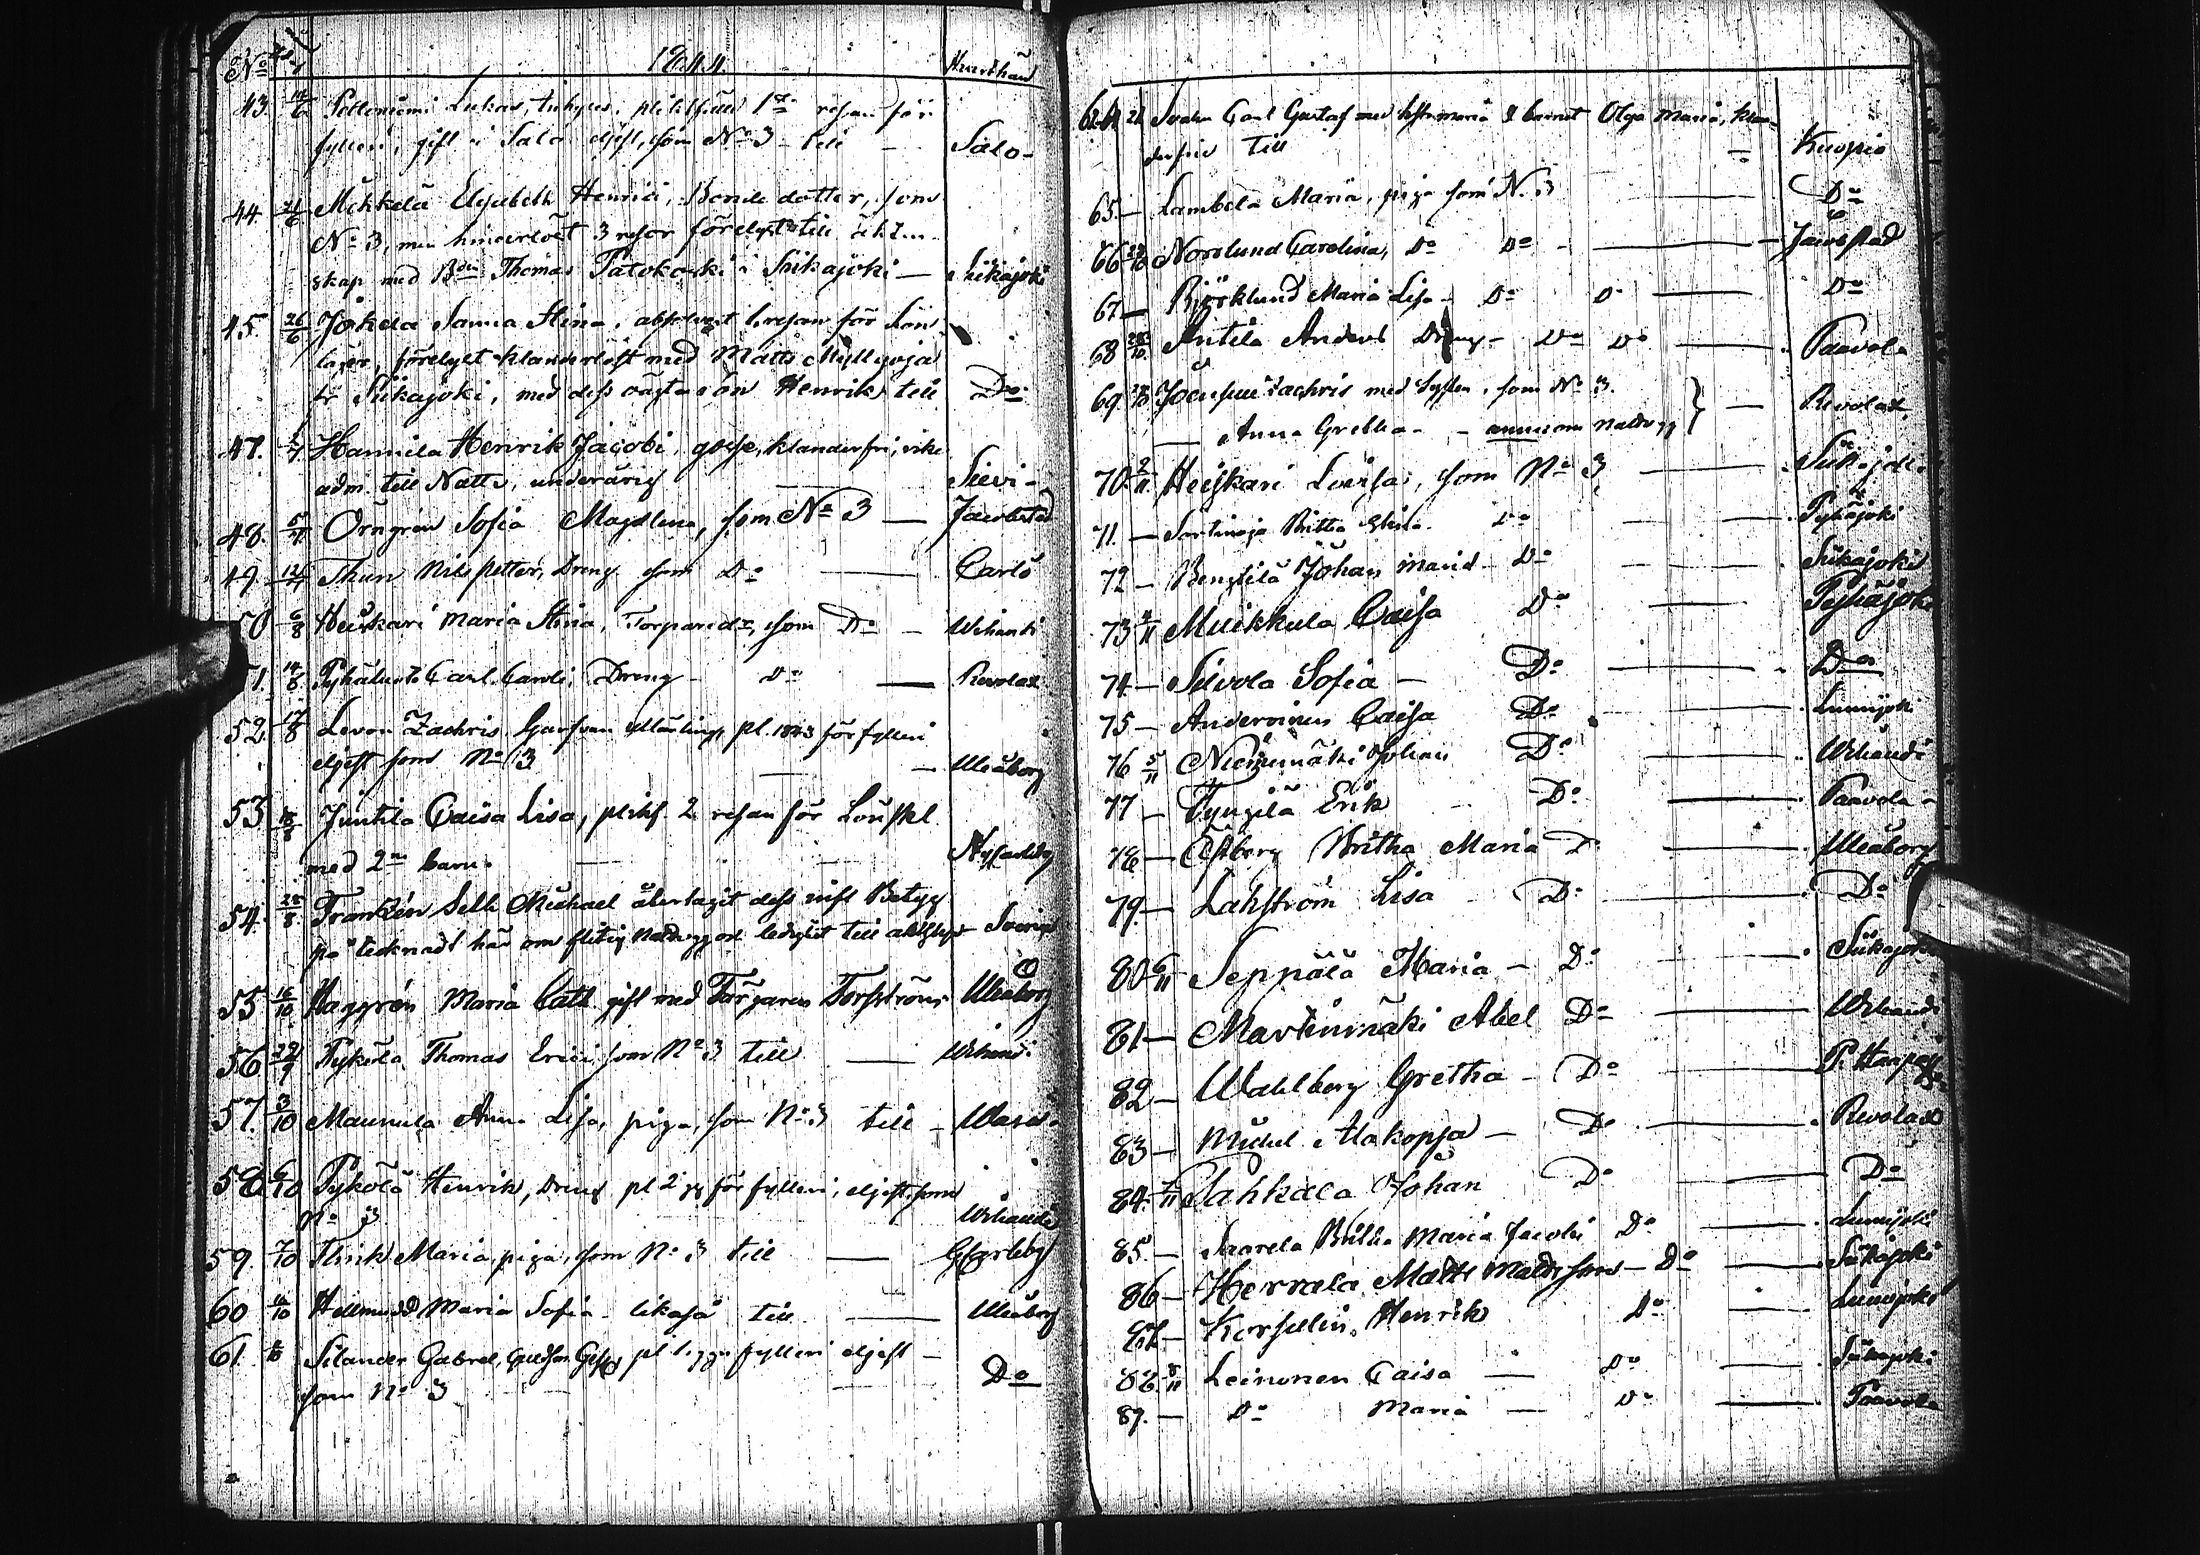 No 1844 Hvarthän
43. Lukas, pliktfäld 1sta resan för
fylleri, gift i Salo eljest, som No 3 till — Salo
44. 21/6 Mikkelä Elisabeth Henrici, Bonde dotter, som
No 3, men hinderlöst 3 resor förelyst till äkten-
skap med Thomas i Siikajoki — Siikajoki
45. 26/6 Jokela Sanna Stina, absolverat 1 resan för Lön-
läger, förelyst klanderlöst med Matts Myllyoja
i Siikajoki, med dess oägta son Henrik till Do
47. Hannila Henrik Jacobi, gosse, klanderfri, icke
adm. till Nattv, underårig Sievi
48. Örngren Sofia Magdlena, som No 3 — Jacobstad
49. 12/7 Thun Nils Petter, Dreng som Do — Carlö
50 6/8 Heiskari Maria Stina, som Do — Wihanti
51. 14/8 Carl Caroli, Dreng Do — Revolax
52. 17/8 Levon Zachris, Garfvare Lärling, pl. 1843 för fylleri
eljest som No 3 — Uleåborg
53 18/8 Juntila Caisa Lisa, plikf. 2 resan för Lönskl.
med 2ne barn Nycarleby
54. 28/8 Franzén Michael återtagit dess Betyg
på tecknadt här om flitig nattvgg och ledighet till äktskp Sverige
55 16/10 Haggrén Maria Cath gift med Färgaren Forsström Uleåborg
56 Pyköla Thomas Erici, som No 3 till — Wihandi
57. 3/10 Maunula Anna Lisa, piga, som No 3 till — Wasa
58 6/10 Pyköla Henrik, Dreng pl 2 gg för fylleri, eljest som
No 3 Wihandi
59. 7/10 Flink Maria, piga, som No 3 till — GCarleby
60 Hellmund Maria Sofia likaså till — Uleåborg
61. Silander Gabriel, pl 1 gg fylleri eljest —
som No 3 Do
62-64 Carl Gustaf med hstr Maria & barnet Olga Maria, klan-
derfri till — Kuopio
65 — Lambela Maria, piga som No 3 — Do
66 Norrlund Carolina, Do Do — Jacobstad
67 — Björklund Maria Lisa — Do Do — Do
68 Antila Anders Dreng — Do Do — Paavola
69. Zachris med Syster, som No 3.
— Anna Gretha — — Revolax
70. 2/11 Heiskari Lovisa, som No 3 — Siikajoki
71. — Britta Do — Pyhäjoki
72 — Bengtilä Johan Do — Siikajoki
73 Muikkula Caisa Do — Pyhäjoki
74 — Siivola Sofia — Do — Do
75 — Caisa Do — Lumijoki
76 5/11 Johan Do — Wihandi
77 — Erik — Do — Paavola
78 — Östberg Britha Maria Do — Uleåborg
79 — Lahström Lisa Do — Do
80 6/11 Seppälä Maria — Do — Siikajoki
81 — Abel Do — Wihandi
82 — Wahlberg Gretha — Do —
83 — Alakopsa — Do — Revolax
84. Pahkala Johan Do — Do
85. — Saarela Britha Maria Jacobi Do — Lumijoki
86 — Herrala Matts Mattsson — Do — Siikajoki
87 — Henrik Do — Lumijoki
88. 8/11 Leinonen Caisa — Do — Siikajoki
89. — Do Maria — Do — Paavola